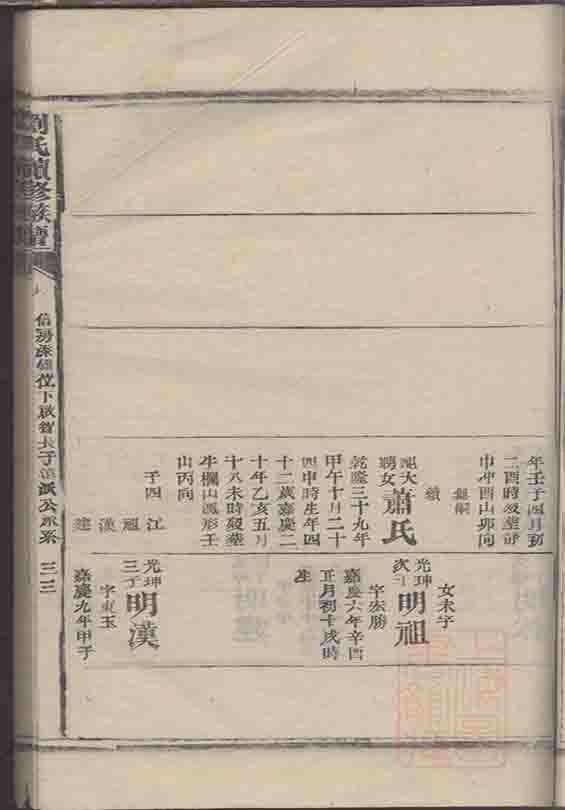 年壬子四月初
二酉時歿塟
巾冲酉山卯向
續
配大
聘女
蕭氏
乾隆三十九年
甲午十月二十
四申時生年四
十二歲嘉慶二
十年乙亥五月
十八未時歿塟
牛欄山鳳形壬
山丙向
子四
江
祖
漢
建
女未字
光珅
次子
明祖
字宏勝
嘉慶六年辛酉
正月初十戌時
生
光珅
三子
明漢
字東玉
嘉慶九年甲子
劉氏續修族譜
信房
位下啟賢長子
公承系
三三